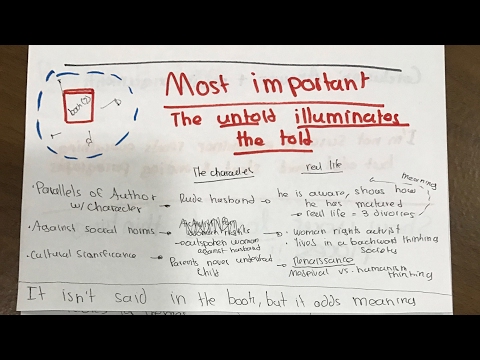 book(?)
Most important
The untold illuminates
the told
The character
real life
meaning
• Parallels of Author
w/ character
→ Rude husband →
he is aware, shows how
he has matured
→ real life = 3 divorces
• Against social norms →
women rights
- outspoken woman
against husband
→ women rights activist
• lives in a backward thinking
society
• Cultural Significance →
Parents never understand
child
→ Renaissance
Medieval vs. humanism
thinking
It isn't said in the book, but it adds meaning